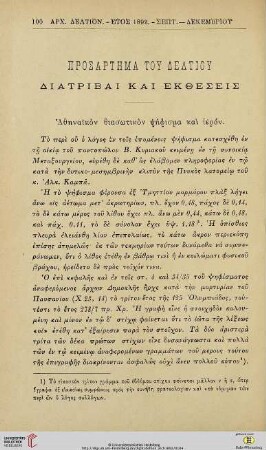 100 ΑΡΧ. ΔΕΛΤΙΟΝ.-ΕΤΟΣ 1892.-ΣΕΠΤ.-ΔΕΚΕΜΒΡΙΟΥ
ΠΡΟΣΑΡΤΗΜΑ ΤΟΥ ΔΕΛΤΙΟΥ
ΔΙΑΤΡΙΒΑΙ ΚΑΙ ΕΚΘΕΣΕΙΣ
Ἀθηναϊκὸν θιασωτικὸν ψήφισμα καὶ ἱερόν.
Τὸ περὶ οὗ ὁ λόγος ἐν τοῖς ἑπομένοις ψήφισμα κατεσχέθη ἐν
τῇ οἰκίᾳ τοῦ παντοπώλου Β. Κυριακοῦ κειμένῃ ἐν τῇ συνοικίᾳ
Μεταξουργείου, εὑρέθη δὲ καθ' ἃς ἐλάβομεν πληροφορίας ἐν τῷ
κατὰ τὴν δυτικο-μεσημβρινὴν κλιτὺν τῆς Πνυκὸς λατομείῳ τοῦ
κ. Ἀλκ. Καμπᾶ.
Ἡ τὸ ψήφισμα φέρουσα ἐξ Ὑμηττίου μαρμάρου πλὰξ λήγει
ἄνω εἰς ἀέτωμα μετ' ἀκρωτηρίων, πλ. ἔχον 0,48, πάχος δὲ 0,14,
τὸ δὲ κάτω μέρος τοῦ λίθου ἔχει πλ. ἄνω μὲν 0,44, κάτω δὲ 0,48.
καὶ πάχ. 0.11, τὸ δὲ σύνολον ἔχει ὕψ. 1,18
πλευρὰ ἐλειάνθη λίαν ἐπιπολαίως, τὸ κάτω ἄκρον περιεκόπη
ἐπίσης ἀτημελῶς ἐκ τῶν τεκμηρίων τούτων δυνάμεθα νὰ συμπε-
ράνωμεν, ὅτι ὁ λίθος ἐτέθη ἐν βάθρῳ τινὶ ἢ ἐν κοιλώματι φυσικοῦ
βράχου, ἠρείδετο δὲ πρὸς τοῖχόν τινα.
Ὁ ἐπὶ κεφαλῆς καὶ ἐν τοῖς στ. 4 καὶ 34/35 τοῦ ψηφίσματος
ἀναφερόμενος ἄρχων Δαμοκλῆς ἦρχε κατὰ τὴν μαρτυρίαν τοῦ
Παυσανίου (Χ 23, 14) τὸ τρίτον ἔτος τῆς 125 Ὀλυμπιάδος, τουτέσ-
τι τὸ ἔτος 278/7 πρ. Χρ. Ἡ γραφὴ εἶνε ἡ στοιχηδὸν καλου-
μένη καὶ μόνον ἐν τῷ
ἐτέθη κατ' ἐξαίρεσιν παρὰ τὸν στοῖχον. Τὰ δύο ἀριστερὰ
τρίτα τῶν δέκα πρώτων στίχων εἶνε δυσανάγνωστα καὶ πολλὰ
τῶν ἐν τῷ κειμένῳ ἀναφερομένων γραμμάτων τοῦ μέρους τούτου
τῆς ἐπιγραφῆς διακρίνονται ἀσφαλῶς οὐχὶ ἄνευ πολλοῦ κόπου¹).